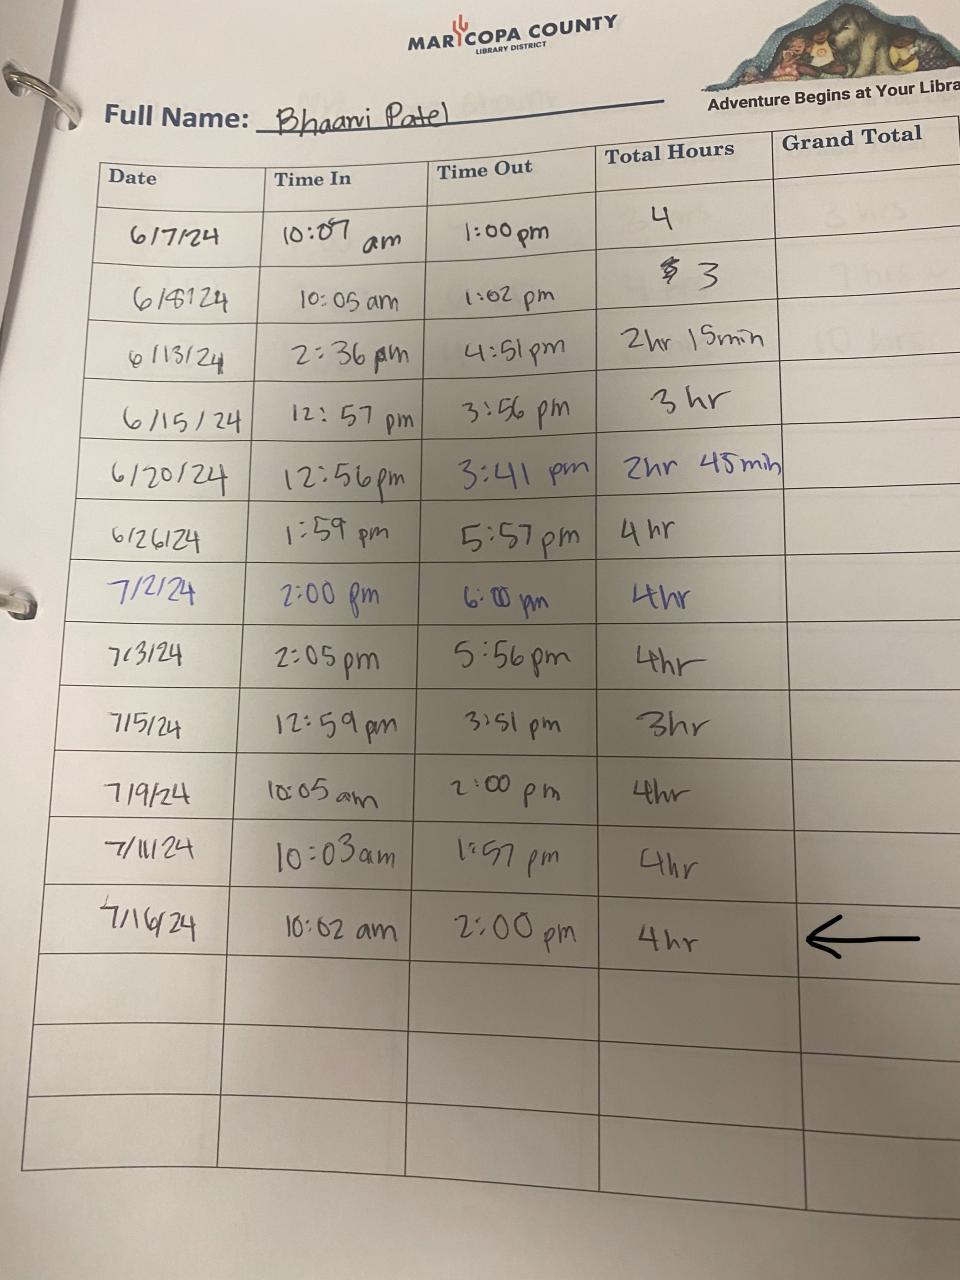 MARICOPA COUNTY
LIBRARY DISTRICT
Adventure Begins at Your Libra
Full Name: Bhaanvi Patel
Date Time In Time Out Total Hours Grand Total
6/7/24 10:07 am 1:00 pm 4
6/8/24 10:05 am 1:02 pm 3
6/13/24 2:36 pm 4:51 pm 2hr 15min
6/15/24 12:57 pm 3:56 pm 3 hr
6/20/24 12:56 pm 3:41 pm 2hr 45min
6/26/24 1:59 pm 5:57 pm 4 hr
7/2/24 2:00 pm 6:00 pm 4hr
7/3/24 2:05 pm 5:56 pm 4hr
7/5/24 12:59 pm 3:51 pm 3hr
7/9/24 10:05 am 2:00 pm 4hr
7/11/24 10:03 am 1:57 pm 4hr
7/16/24 10:02 am 2:00 pm 4hr